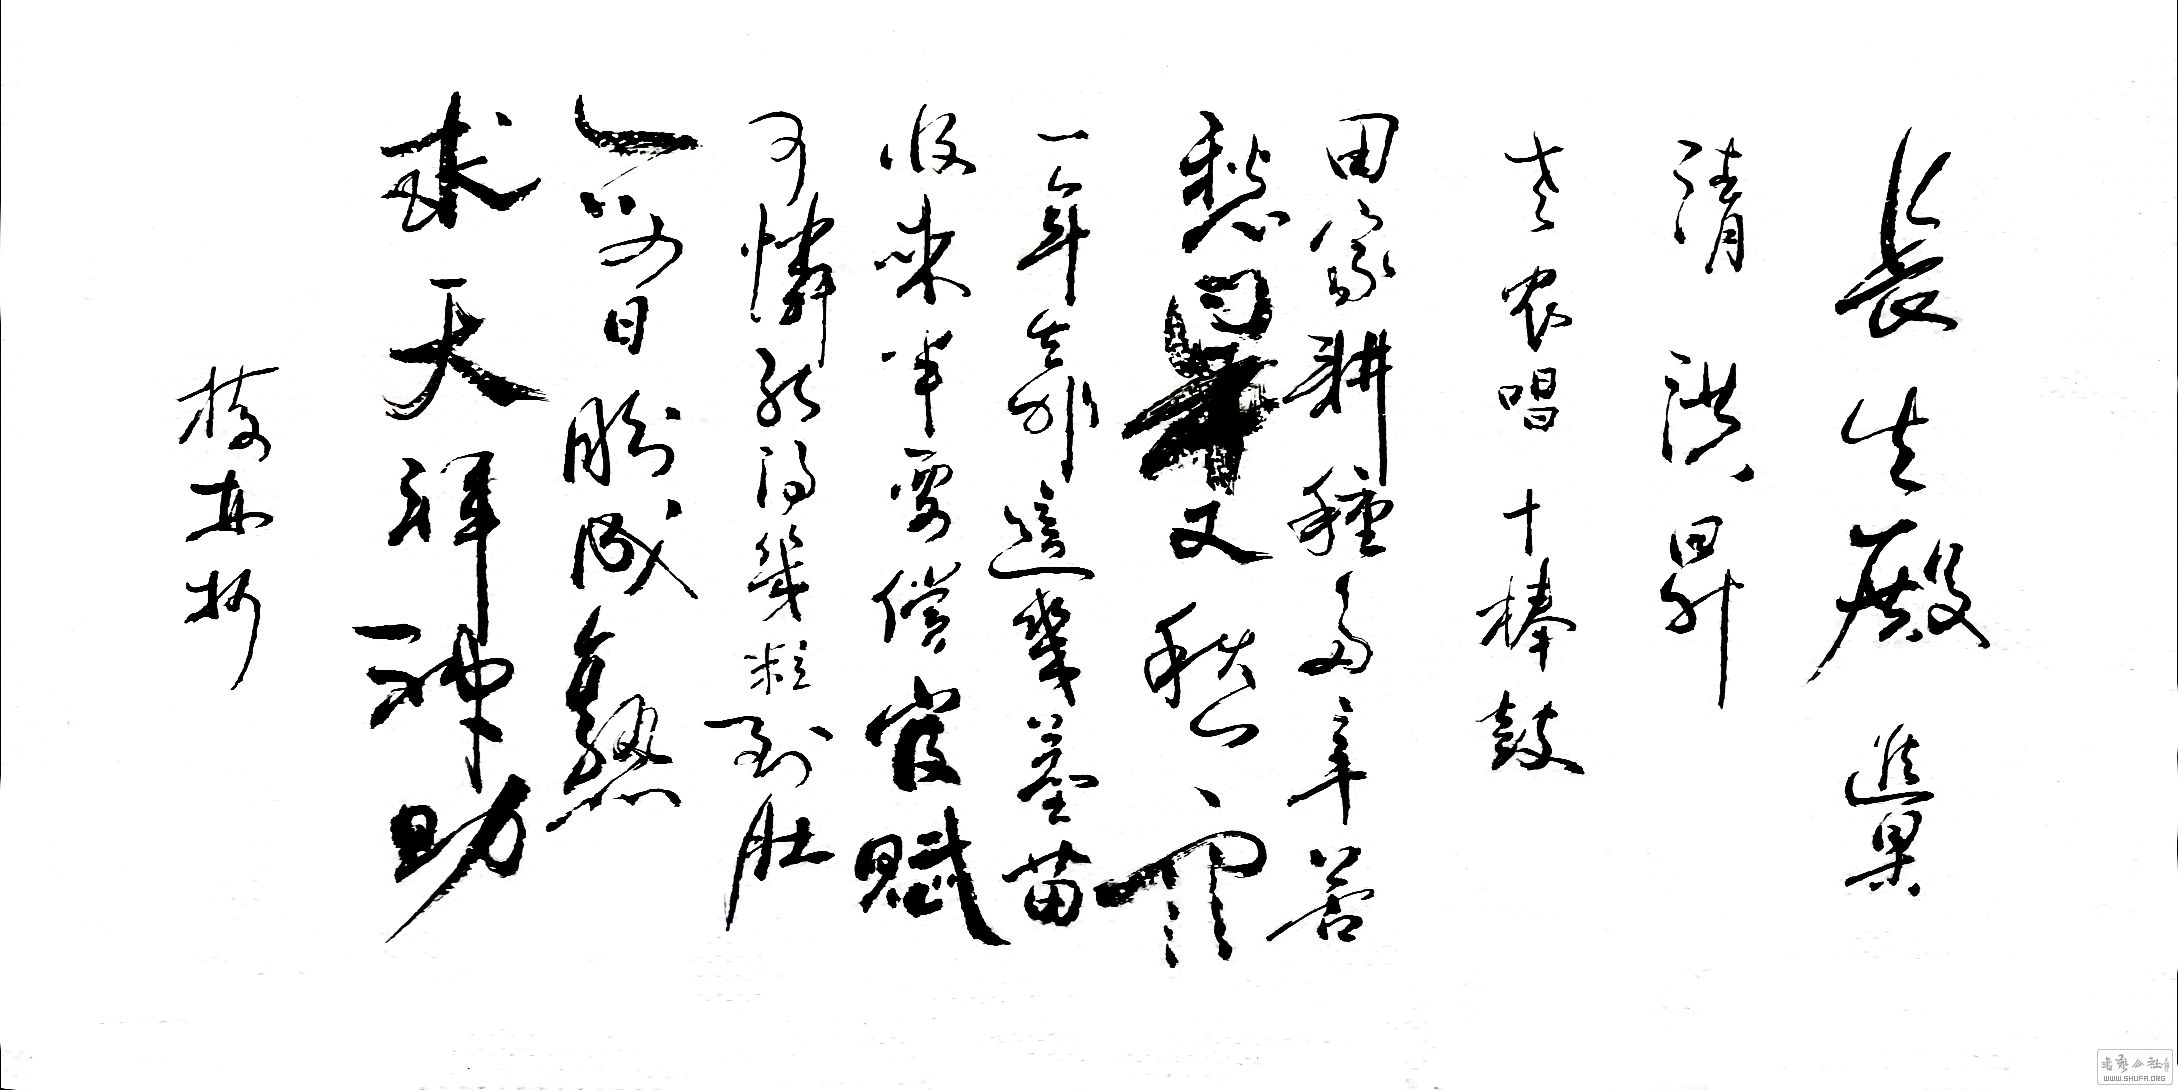 長生殿 進果
清 洪昇
老农唱 十棒鼓
田家耕種多辛苦
愁旱又愁雨
一年靠這幾莖苗
收來半要償官賦
可憐能得幾粒到肚
每日盼成熟
求天拜神助
书艺公社
WWW.SHUFA.ORG